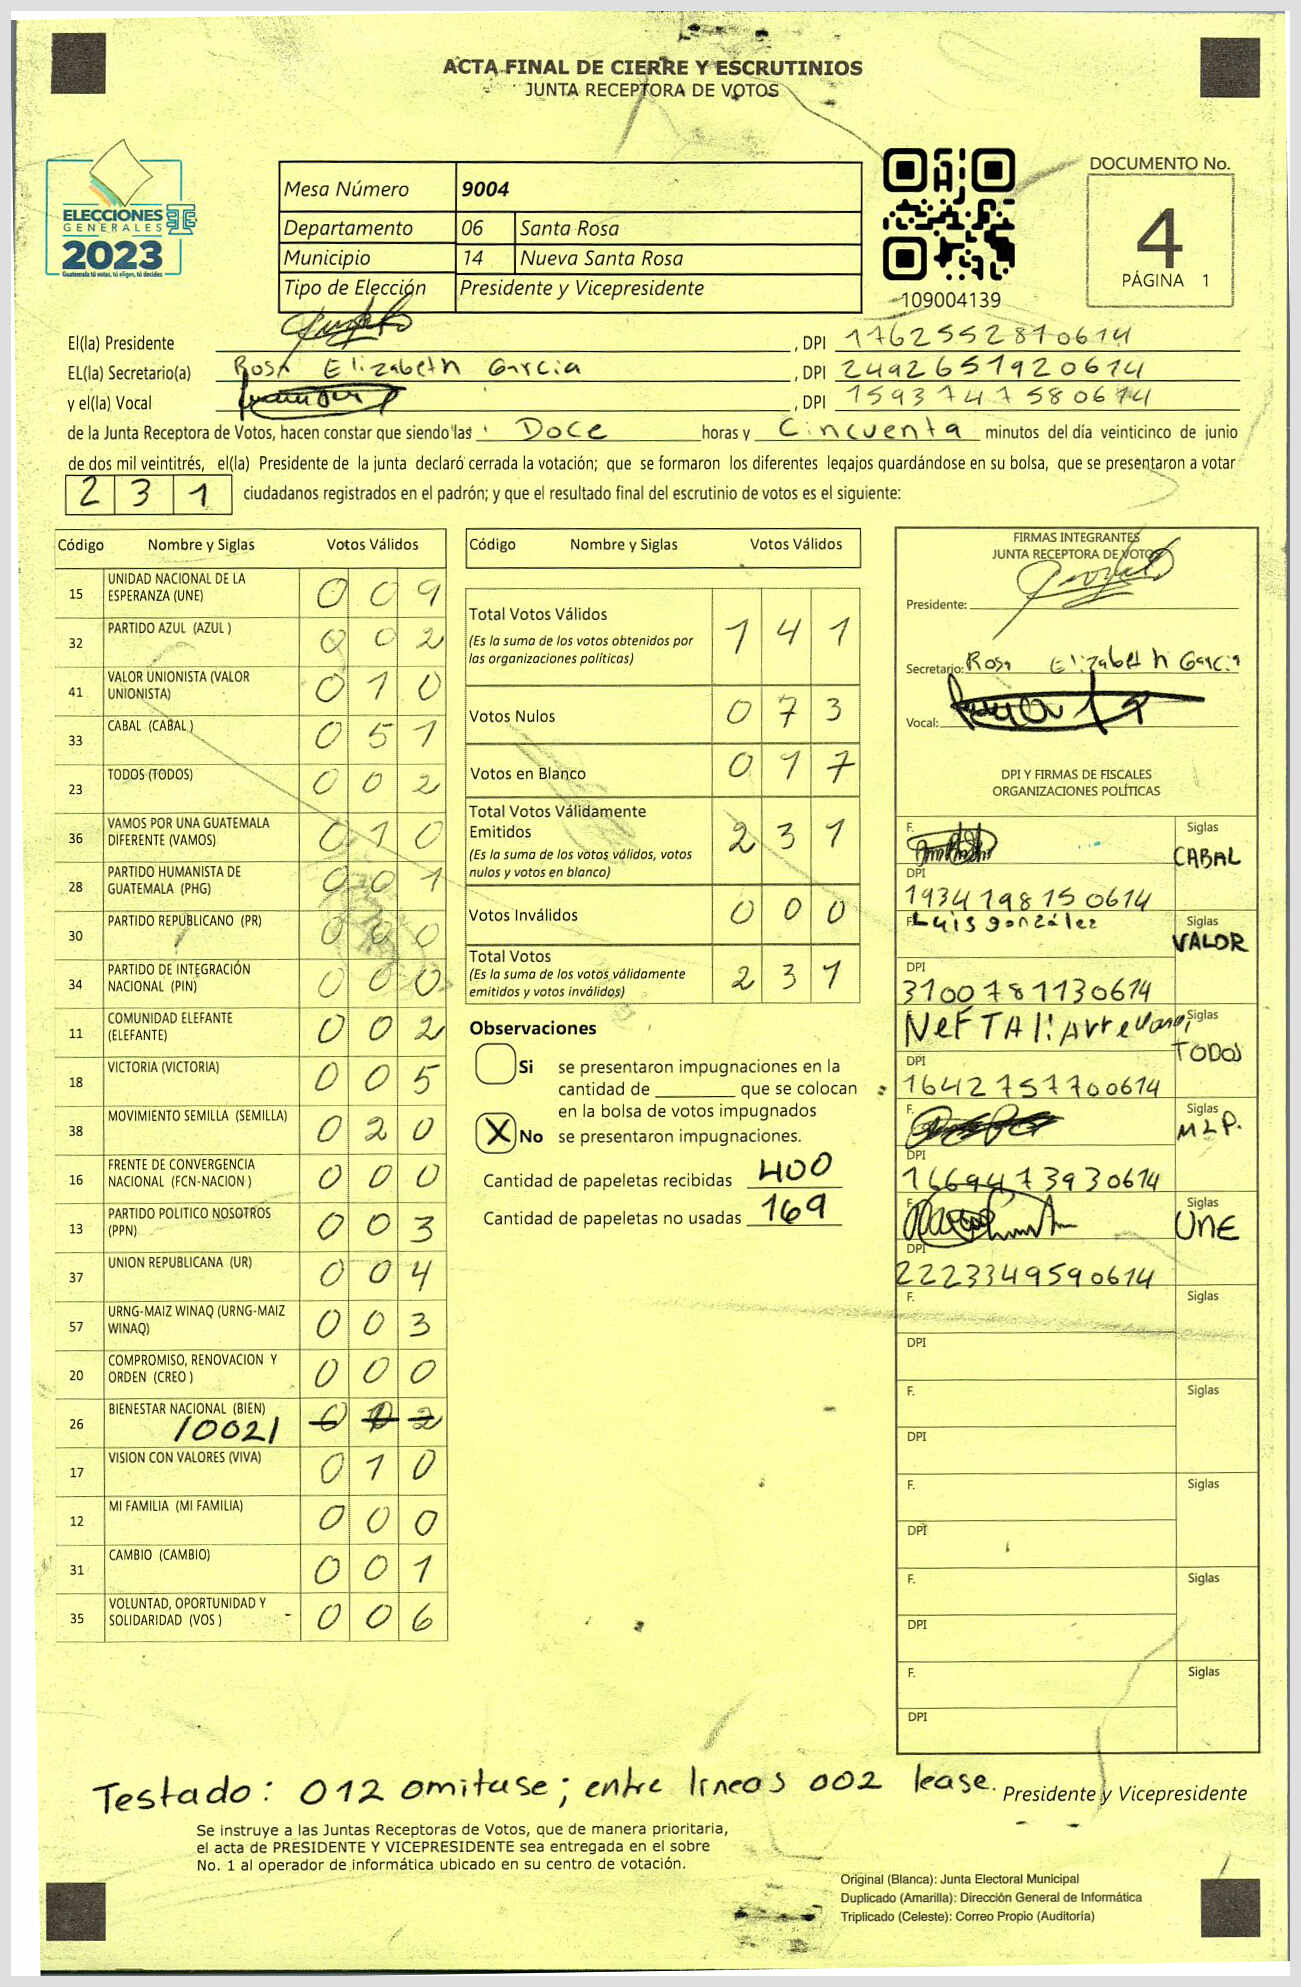 ACTA FINAL DE CIERRE Y ESCRUTINIOS
JUNTA RECEPTORA DE VOTOS
ELECCIONES
GENERALES
2023
Guatemala tú votas, tú eliges, tú decides
Mesa Número 9004
Departamento 06 Santa Rosa
Municipio 14 Nueva Santa Rosa
Tipo de Elección Presidente y Vicepresidente
109004139
DOCUMENTO No.
4
PÁGINA 1
El(la) Presidente , DPI 1762552810614
EL(la) Secretario(a) Rosa Elizabeth Garcia , DPI 2492651920614
y el(la) Vocal , DPI 1593747580614
de la Junta Receptora de Votos, hacen constar que siendo las Doce horas y Cincuenta minutos del día veinticinco de junio
de dos mil veintitrés, el(la) Presidente de la junta declaró cerrada la votación; que se formaron los diferentes legajos guardándose en su bolsa, que se presentaron a votar
231 ciudadanos registrados en el padrón; y que el resultado final del escrutinio de votos es el siguiente:
Código Nombre y Siglas Votos Válidos
15 UNIDAD NACIONAL DE LA ESPERANZA (UNE) 009
32 PARTIDO AZUL (AZUL ) 002
41 VALOR UNIONISTA (VALOR UNIONISTA) 010
33 CABAL (CABAL ) 051
23 TODOS (TODOS) 002
36 VAMOS POR UNA GUATEMALA DIFERENTE (VAMOS) 010
28 PARTIDO HUMANISTA DE GUATEMALA (PHG) 001
30 PARTIDO REPUBLICANO (PR) 000
34 PARTIDO DE INTEGRACIÓN NACIONAL (PIN) 000
11 COMUNIDAD ELEFANTE (ELEFANTE) 002
18 VICTORIA (VICTORIA) 005
38 MOVIMIENTO SEMILLA (SEMILLA) 020
16 FRENTE DE CONVERGENCIA NACIONAL (FCN-NACION ) 000
13 PARTIDO POLITICO NOSOTROS (PPN) 003
37 UNION REPUBLICANA (UR) 004
57 URNG-MAIZ WINAQ (URNG-MAIZ WINAQ) 003
20 COMPROMISO, RENOVACION Y ORDEN (CREO ) 000
26 BIENESTAR NACIONAL (BIEN) /002/ 012
17 VISION CON VALORES (VIVA) 010
12 MI FAMILIA (MI FAMILIA) 000
31 CAMBIO (CAMBIO) 001
35 VOLUNTAD, OPORTUNIDAD Y SOLIDARIDAD (VOS ) 006
Código Nombre y Siglas Votos Válidos
Total Votos Válidos 141
(Es la suma de los votos obtenidos por
las organizaciones políticas)
Votos Nulos 073
Votos en Blanco 017
Total Votos Válidamente
Emitidos 231
(Es la suma de los votos válidos, votos
nulos y votos en blanco)
Votos Inválidos 000
Total Votos 231
(Es la suma de los votos válidamente
emitidos y votos inválidos)
Observaciones
Si se presentaron impugnaciones en la
cantidad de ________ que se colocan
en la bolsa de votos impugnados
X No se presentaron impugnaciones.
Cantidad de papeletas recibidas 400
Cantidad de papeletas no usadas 169
FIRMAS INTEGRANTES
JUNTA RECEPTORA DE VOTOS
Presidente:
Secretario: Rosa Elizabeth Garcia
Vocal:
DPI Y FIRMAS DE FISCALES
ORGANIZACIONES POLÍTICAS
F. Siglas CABAL
DPI 1934198150614
F. Luis González Siglas VALOR
DPI 3100781130614
Siglas TODOS
DPI 1642757700614
F. Siglas MLP.
DPI 1669473930614
F. Siglas UNE
DPI 2223349590614
F. Siglas
DPI
F. Siglas
DPI
F. Siglas
DPI
F. Siglas
DPI
F. Siglas
DPI
Testado: 012 omitase; entre lineas 002 lease.
Presidente y Vicepresidente
Se instruye a las Juntas Receptoras de Votos, que de manera prioritaria,
el acta de PRESIDENTE Y VICEPRESIDENTE sea entregada en el sobre
No. 1 al operador de informática ubicado en su centro de votación.
Original (Blanca): Junta Electoral Municipal
Duplicado (Amarilla): Dirección General de Informática
Triplicado (Celeste): Correo Propio (Auditoría)